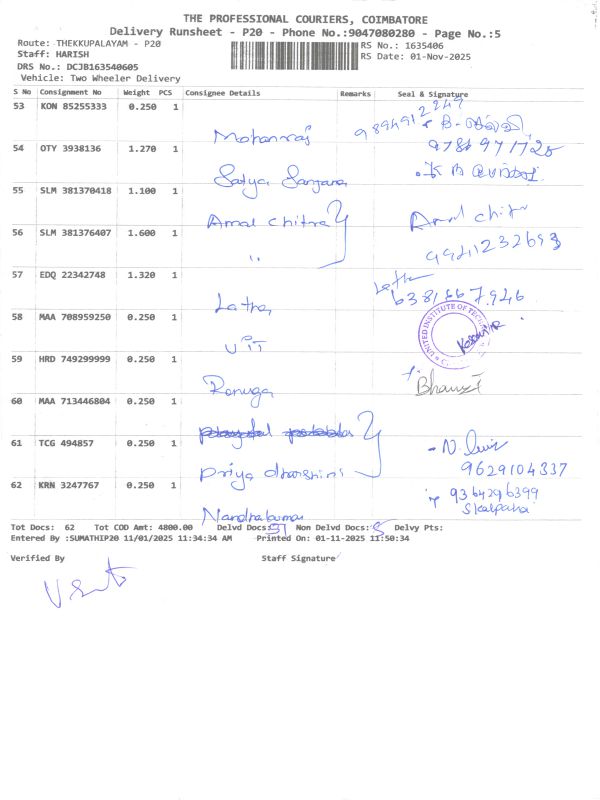 THE PROFESSIONAL COURIERS, COIMBATORE
Delivery Runsheet - P20 - Phone No.:9047080280 - Page No.:5
Route: THEKKUPALAYAM - P20
RS No.: 1635406
Staff: HARISH
RS Date: 01-Nov-2025
DRS No.: DCJB163540605
Vehicle: Two Wheeler Delivery
S No Consignment No Weight PCS Consignee Details Remarks Seal & Signature
53 KON 85255333 0.250 1
Mohanraj 9894912249
54 OTY 3938136 1.270 1
Satya Sanjana
55 SLM 381370418 1.100 1
Amal Chitra Amal Chitr
56 SLM 381376407 1.600 1
" 9941232693
57 EDQ 22342748 1.320 1
Latha Latha
6381667946
58 MAA 708959250 0.250 1
UIT UNITED INSTITUTE OF
59 HRD 749299999 0.250 1
Renuga
60 MAA 713446804 0.250 1
61 TCG 494857 0.250 1
Priya dharshini
9629104337
62 KRN 3247767 0.250 1
9364296399
Nandhakumar
Tot Docs: 62 Tot COD Amt: 4800.00 Delvd Docs: 57 Non Delvd Docs: 5 Delvy Pts:
Entered By :SUMATHIP20 11/01/2025 11:34:34 AM Printed On: 01-11-2025 11:50:34
Verified By Staff Signature